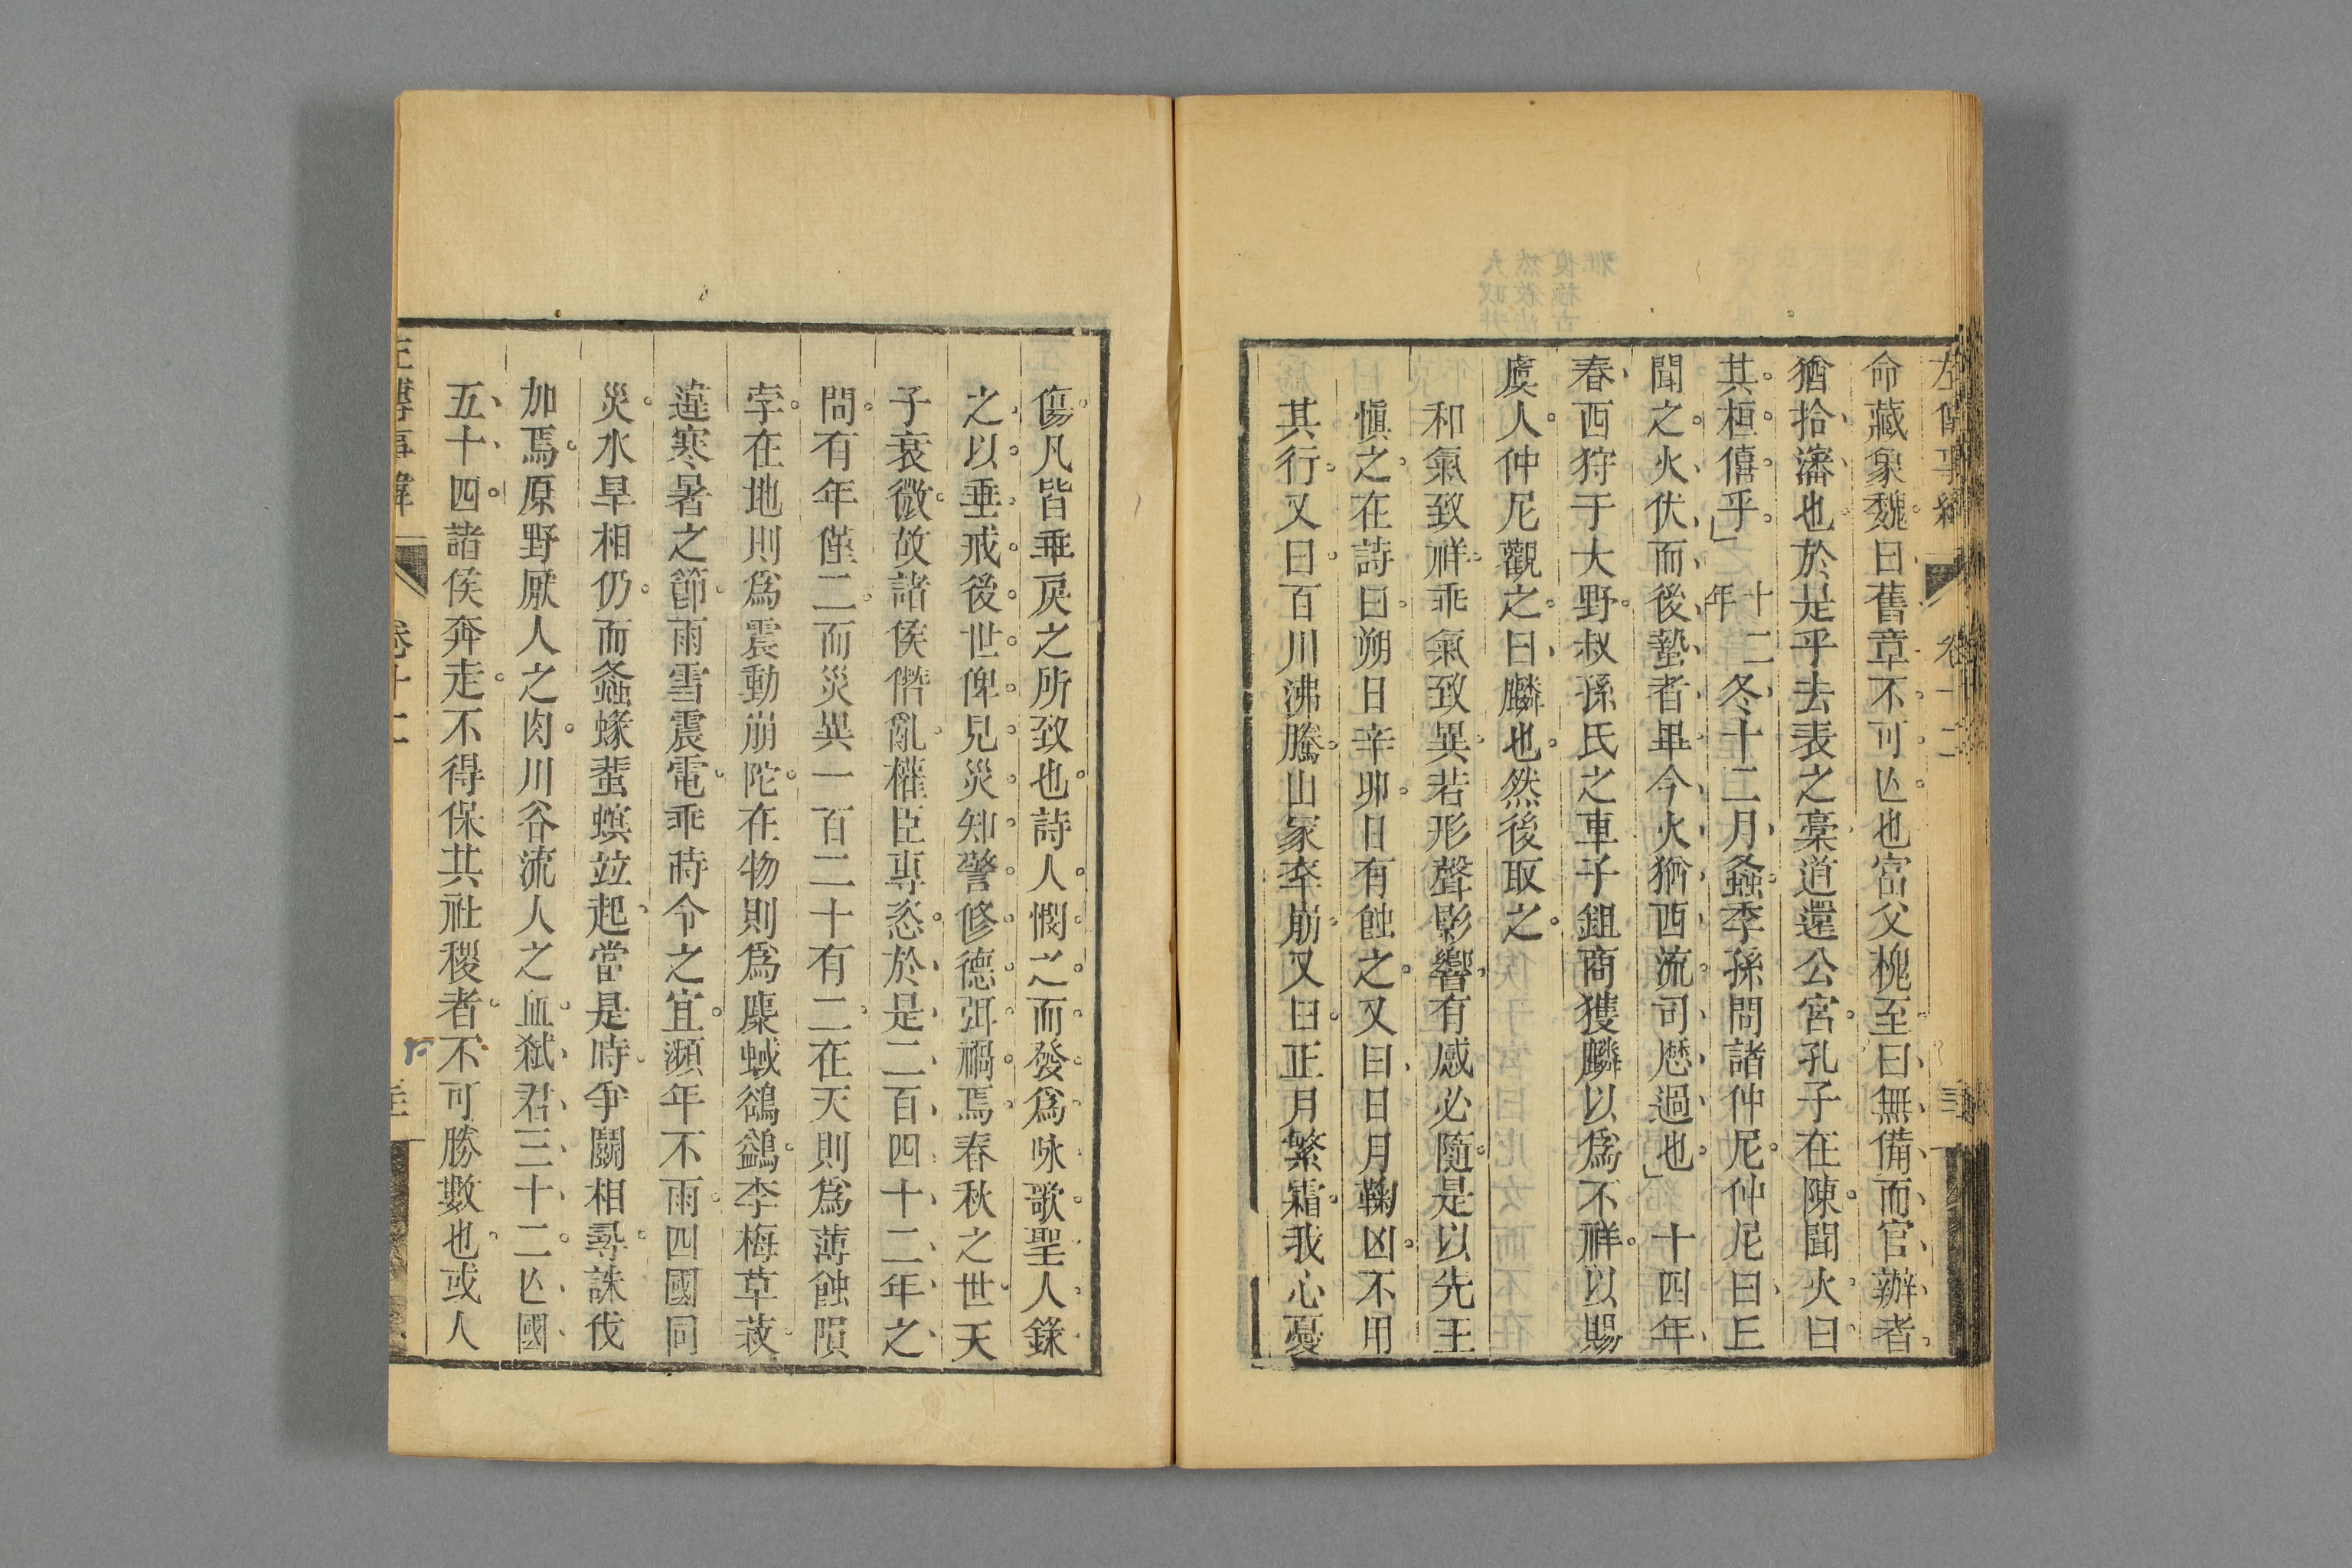 命藏象魏曰舊章不可亾也富父槐至曰無備而官辦者
猶拾瀋也於是乎去表之稾道還公宮孔子在陳聞火曰
其桓僖乎十二年冬十二月螽季孫問諸仲尼仲尼曰丘
聞之火伏而後蟄者畢今火猶西流司歴過也十四年
春西狩于大野叔孫氏之車子鉏商獲麟以爲不祥以賜
虞人仲尼觀之曰麟也然後取之
和氣致祥乖氣致異若形聲影響有感必隨是以先王
愼之在詩曰朔日辛卯日有蝕之又曰日月鞠凶不用
其行又曰百川沸騰山冢崒崩又曰正月繁霜我心憂
傷凡皆乖戾之所致也詩人憫之而發爲咏歌聖人錄
之以垂戒後世俾見災知警修德弭禍焉春秋之世天
子衰微故諸侯僭亂權臣專恣於是二百四十二年之
間有年僅二而災異一百二十有二在天則爲薄蝕隕
孛在地則爲震動崩陀在物則爲麋蜮鶬鷁李梅草菽
違寒暑之節雨雪震電乖時令之宜瀕年不雨四國同
災水旱相仍而螽蝝蜚螟竝起當是時爭鬭相尋誅伐
加焉原野厭人之肉川谷流人之血弑君三十二亾國
五十四諸侯奔走不得保其社稷者不可勝數也或人
左傳事緯
卷十二